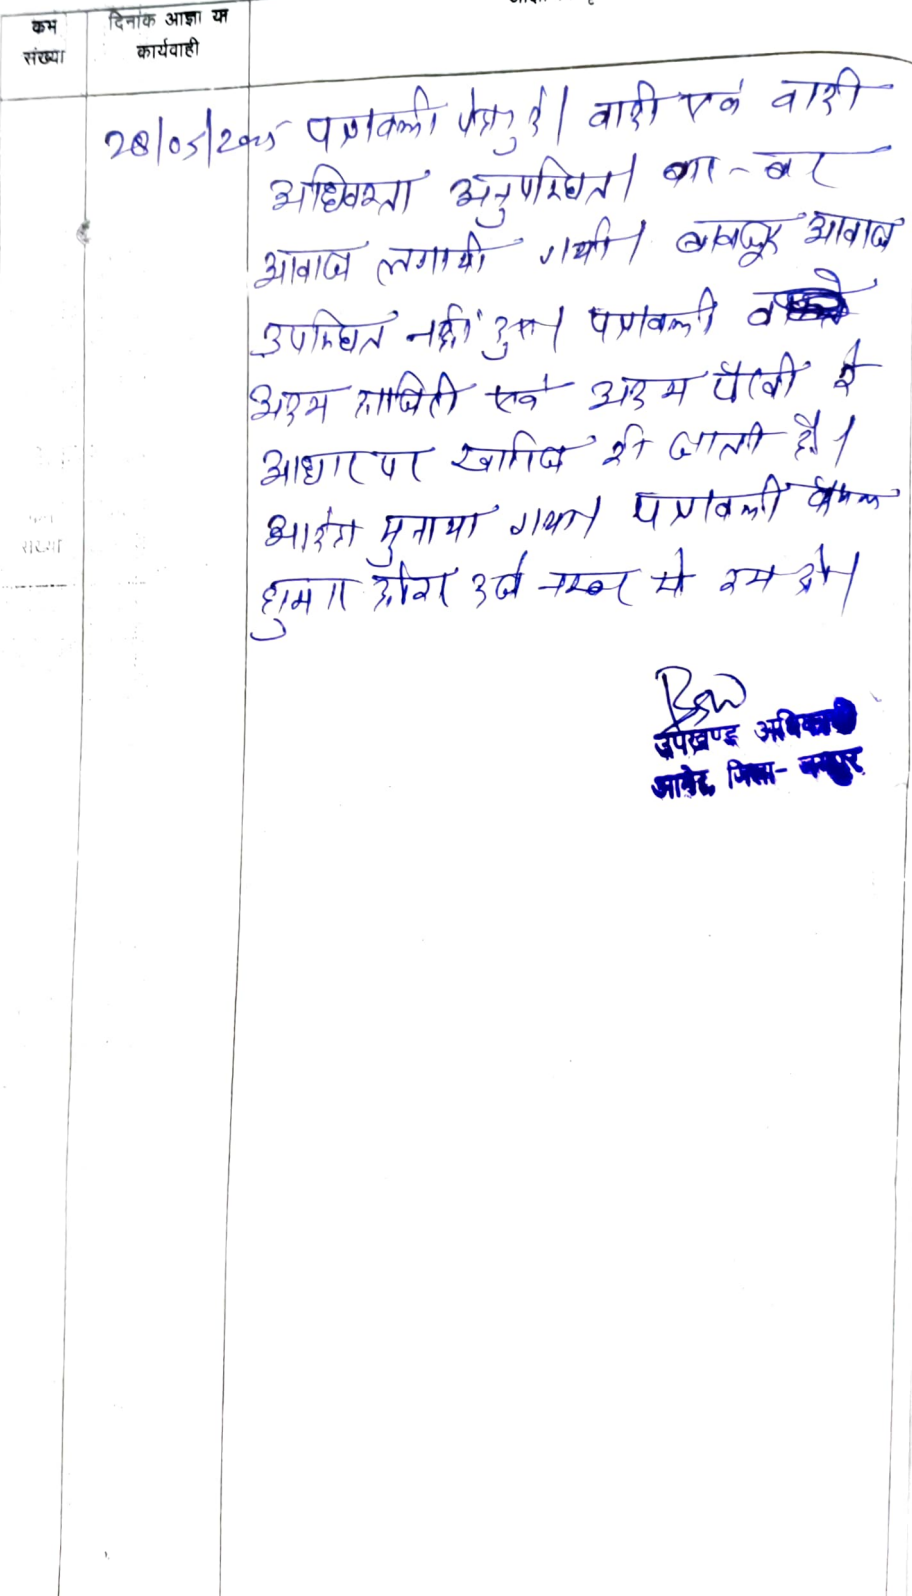 क्रम
संख्या
दिनांक आज्ञा या
कार्यवाही
28/05/2025 पत्रावली पेश हुई। वादी एवं वादी
अधिवक्ता अनुपस्थित। बार-बार
आवाज लगायी गयी। बावजूद आवाज
उपस्थित नहीं हुए। पत्रावली
अदम हाजिरी एवं अदम पैरवी के
आधार पर खारिज की जाती है।
आदेश सुनाया गया। पत्रावली फैसल
शुमार होकर दर्ज नम्बर से कम हो।
उपखण्ड अधिकारी
आमेर, जिला- जयपुर